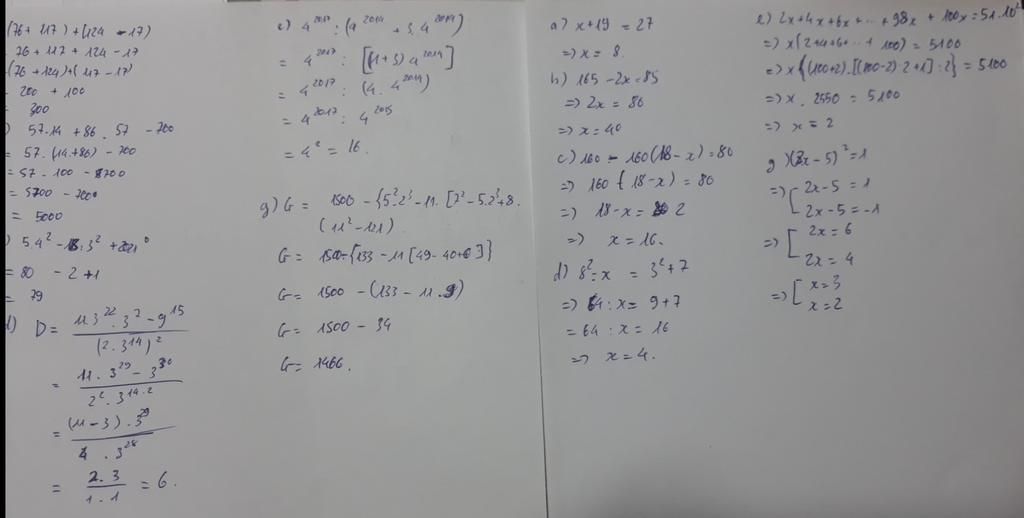 (76 + 117) + (124 - 17)
= 76 + 117 + 124 - 17
= (76 + 124) + (117 - 17)
= 200 + 100
= 300
) 57.14 + 86.57 - 700
= 57.(14+86) - 700
= 57.100 - 700
= 5700 - 700
= 5000
) 5.4² - 18:3² + 2021⁰
= 80 - 2 + 1
= 79
d) D = (11.3²².3⁷ - 9¹⁵) / (2.3¹⁴)²
= (11.3²⁹ - 3³⁰) / (2².3¹⁴·²)
= (11 - 3).3²⁹ / (4.3²⁸)
= 2.3 / 1.1 = 6.
e) 4²⁰¹⁷ : (4²⁰¹⁴ + 3.4²⁰¹⁴)
= 4²⁰¹⁷ : [(1+3) 4²⁰¹⁴]
= 4²⁰¹⁷ : (4.4²⁰¹⁴)
= 4²⁰¹⁷ : 4²⁰¹⁵
= 4² = 16.
g) G = 1500 - {5².2³ - 11.[7² - 5.2³ + 8.
(11² - 121)
G = 1500 - {133 - 11[49 - 40 + 0]}
G = 1500 - (133 - 11.9)
G = 1500 - 34
G = 1466.
a) x + 19 = 27
=> x = 8.
b) 165 - 2x = 85
=> 2x = 80
=> x = 40
c) 160 - 160(18 - x) = 80
=> 160(18 - x) = 80
=> 18 - x = 2
=> x = 16.
d) 8² : x = 3² + 7
=> 64 : x = 9 + 7
= 64 : x = 16
=> x = 4.
e) 2x + 4x + 6x + ... + 98x + 100x = 51.10²
=> x(2+4+6+...+100) = 5100
=> x{(100+2).[(100-2):2+1]:2} = 5100
=> x.2550 = 5100
=> x = 2
g) (2x - 5)² = 1
=> [ 2x - 5 = 1
2x - 5 = -1
=> [ 2x = 6
2x = 4
=> [ x = 3
x = 2